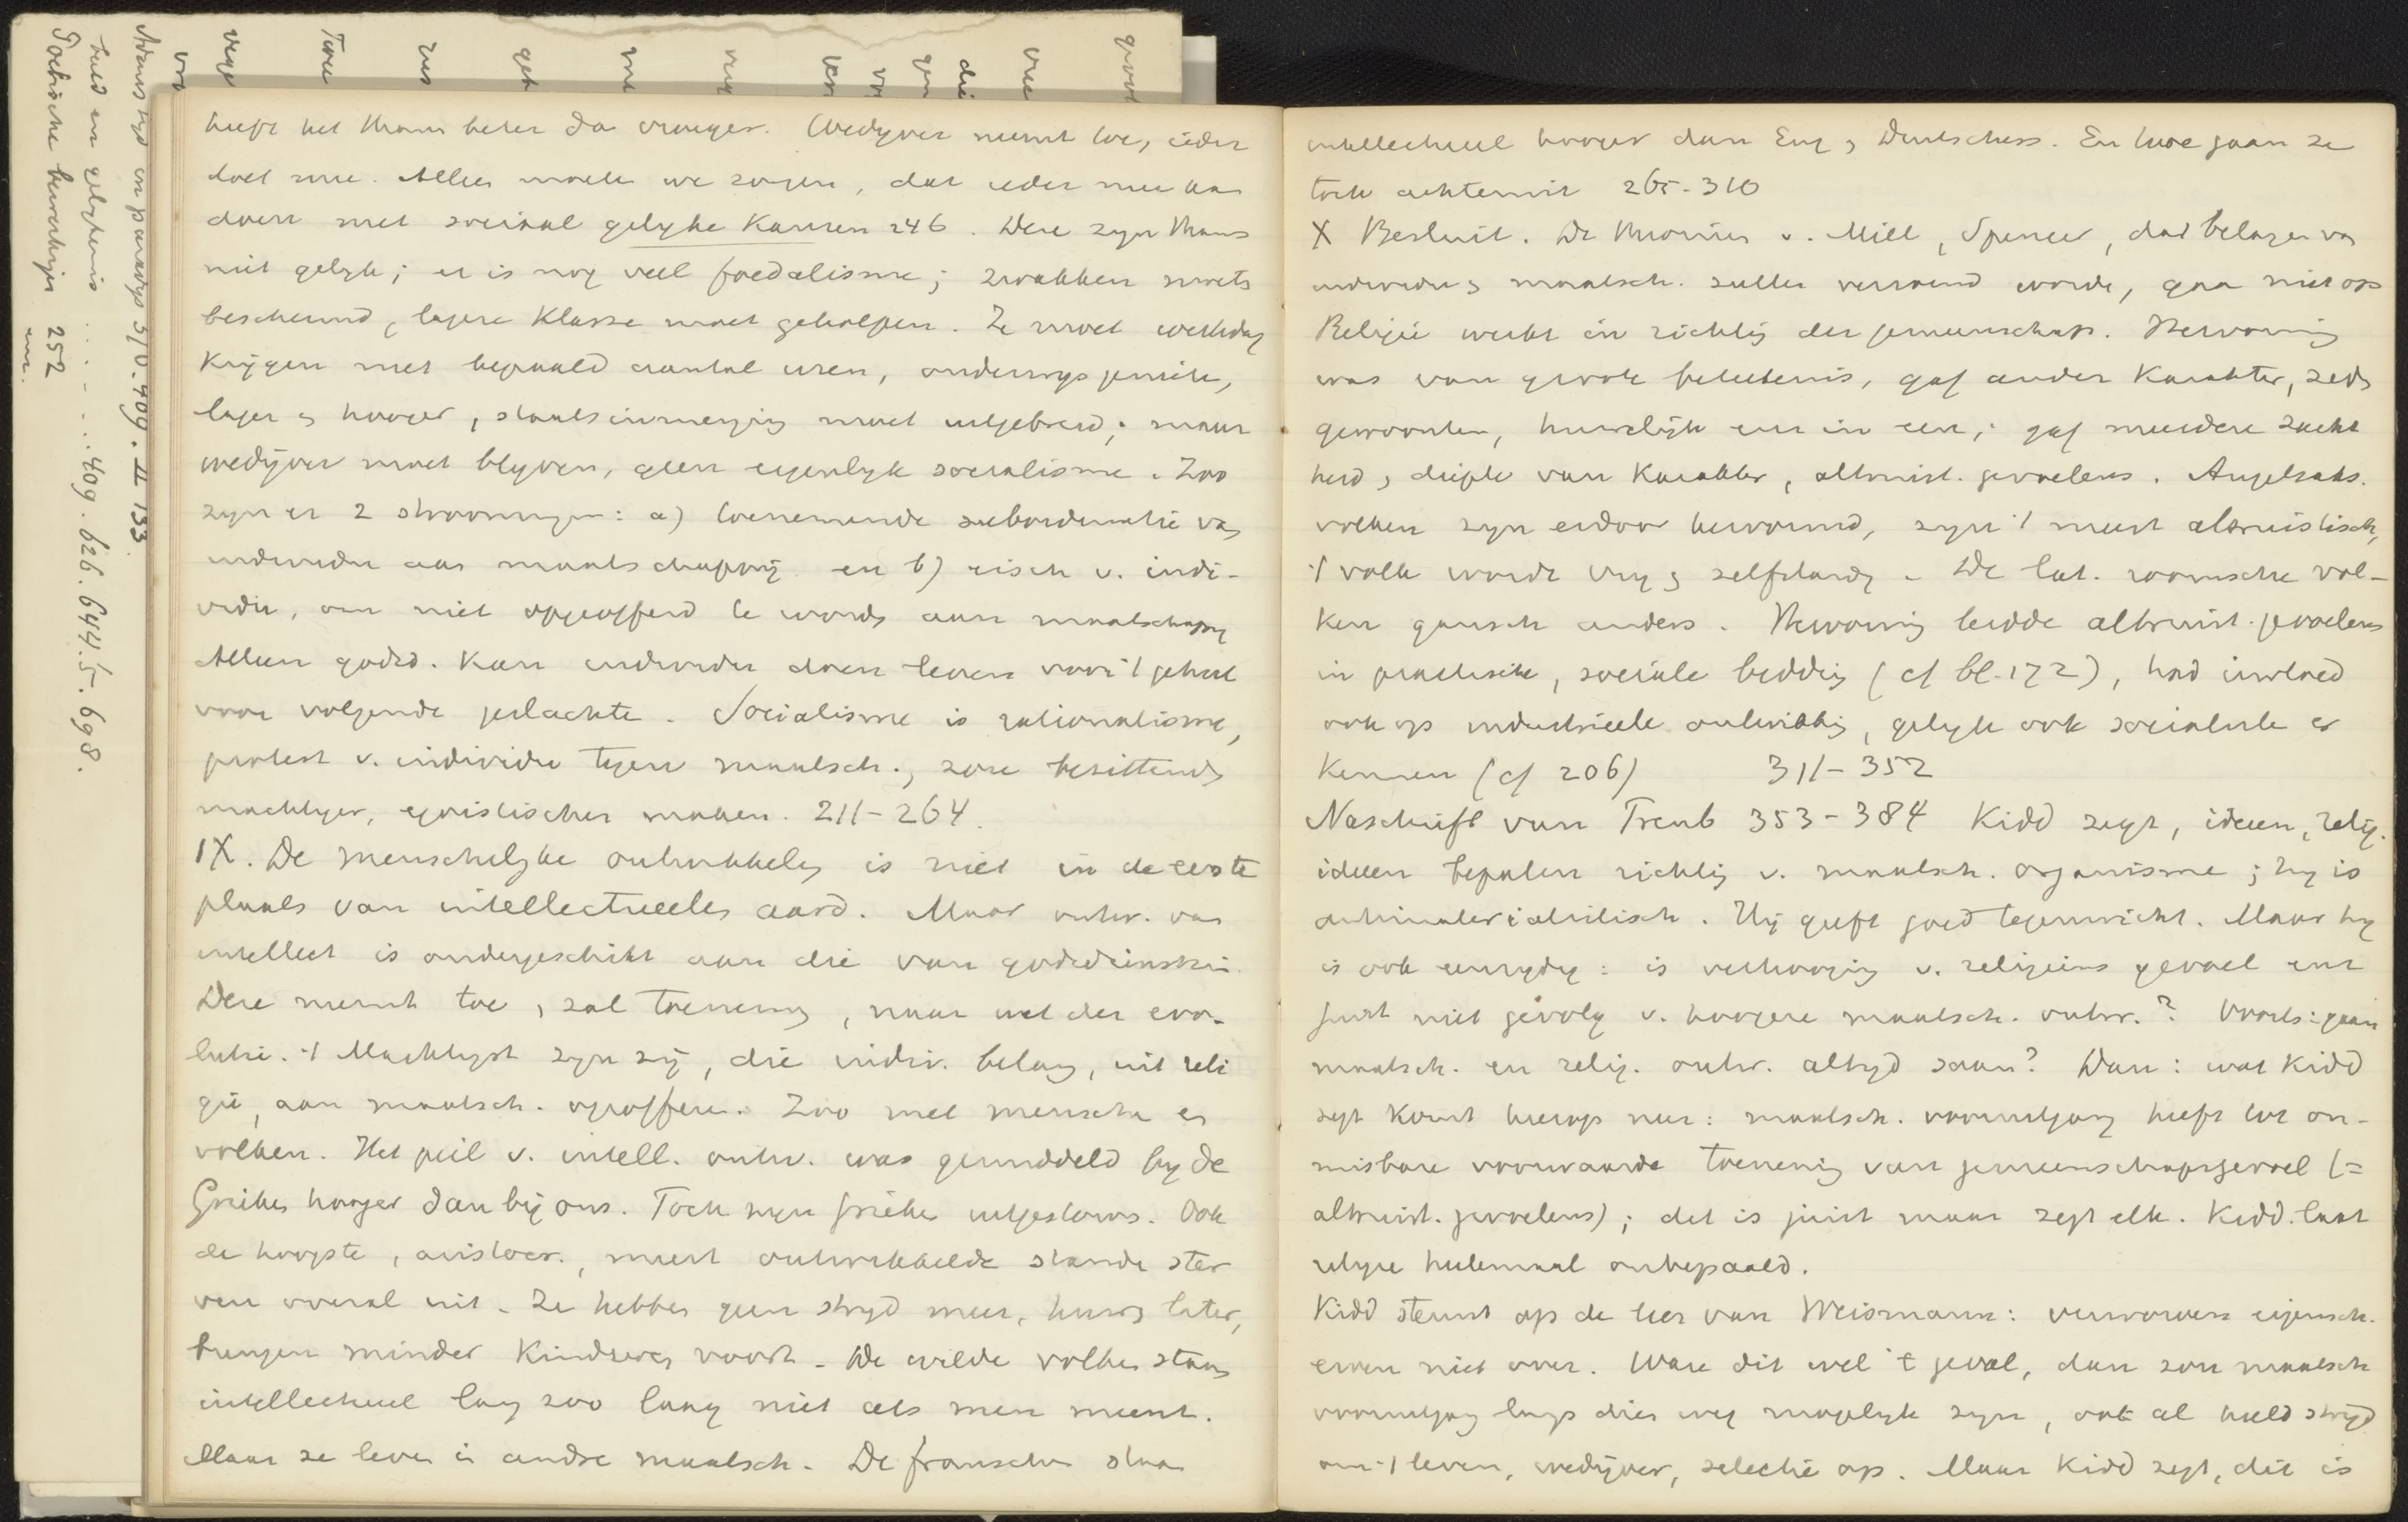 heeft het thans beter da vroeger. Wedyver neemt toe, ieder
doet mee. Alleen moete we zorgen, dat ieder mee kan
doen met sociaal gelyke Kansen 246. Deze zyn thans
niet gelyk; er is nog veel foedalisme; zwakken moets
beschermd, lagere Klasse moet geholpen. Ze moet werkdag
Krygen met bepaald aantal uren, onderwys geniete,
lager & hooger, staatsinmenging moet uitgebreid; maar
wedijver moet blyven, geen eigenlyk socialisme. Zoo
zyn er 2 stroomingen: a) toenemende subordinatie van
individu aan maatschappij en b) eisch v. indi-
vidu, om niet opgeofferd te words aan maatschappy
Alleen godsd. Kan individu doen leven voor 't geheel
voor volgende geslachte. Socialisme is rationalisme,
protest v. individu tegen maatsch., zou bezittends
machtiger, egoistischer maken. 211-264.
IX. De menschelyke ontwikkeling is niet in de eerste
plaats van intellectueelen aard. Maar ontw. van
intellect is ondergeschikt aan die van godsdienstzin.
Deze neemt toe, zal toenemen, naar wet der evo-
lutie. 't Machtigst zyn zij, die indiv. belang, uit reli
gie, aan maatsch. opofferen. Zoo met mensche en
volken. Het peil v. intell. ontw. was gemiddeld by de
Grieken hooger dan bij ons. Toch zyn Grieken uitgestorven. Ook
de hoogste, aristocr., meest ontwikkelde stande ster
ven overal uit. Ze hebben geen stryd meer, huwen later,
brengen minder Kinderen voort. De wilde volken staan
intellectueel lang zoo laag niet als men meent.
Maar ze leven in andre maatsch. De franschen staan
intellectueel hooger dan Eng & Duitschers. En hoe gaan ze
toch achteruit 265-310
X Besluit. De theorien v. Mill, Spencer, dat belangen van
individu & maatsch. zullen verzoend worde, gaa niet op
Religie werkt in richting der gemeenschap. Hervorming
was van groote beteekenis, gaf ander Karakter, zeds
gewoonten, huwelijk enz in een; gaf meerdere zacht
heid, diepte van Karakter, altruist. gevoelens. Angelsaks.
volken zyn erdoor hervormd, zyn 't meest altruistisch,
't volk worde vry & zelfstandig. De lat. roomsche vol-
ken gansch anders. Hervorming leidde altruist. gevoelens
in practische, sociale bedding (cf bl. 172), had invloed
ook op industrieele ontwikkeling, gelyk ook socialisten er
Kennen (cf 206) 311-352
Naschrift van Treub 353-384 Kidd zegt, ideen, relig.
ideen bepalen richting v. maatsch. organisme; hy is
antimaterialistisch. Hij geeft goed tegenwicht. Maar hy
is ook eenzydig: is verhooging v. religieus gevoel enz
juist niet gevolg v. hoogere maatsch. ontw.? Voorts: gaan
maatsch. en relig. ontw. altyd saam? Dan: wat Kidd
zegt komt hierop neer: maatsch. vooruitgang heeft tot on-
misbare voorwaarde toeneming van gemeenschapsgevoel (=
altruist. gevoelens); dat is juist maar zegt elk. Kidd laat
religie helemaal onbepaald.
Kidd steunt op de leer van Weismann: verworven eigensch.
erven niet over. Ware dit wel 't geval, dan zou maatsch
vooruitgang langs dien weg mogelyk zyn, ook al hield stryd
om 't leven, wedijver, selectie op. Maar Kidd zegt, dit is
Adams tyd en paradys 570. 409. II 133.
beeld en gelykenis ...... 409. 626. 644. 5. 698.
252
enz.